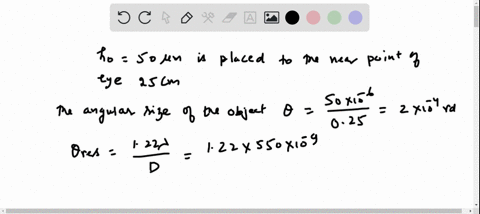 h₀ = 50 μm is placed to the near point of
eye 25cm
The angular size of the object θ = 50×10⁻⁶ / 0.25 = 2×10⁻⁴ rd
θres = 1.22λ / D = 1.22 × 550×10⁻⁹